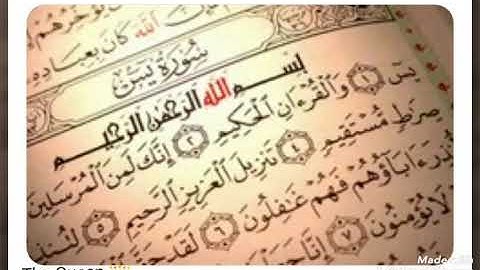 اللَّهَ كَانَ بِعِبَادِهِ
سُورَةُ يسٓ
بِسْمِ اللَّهِ الرَّحْمَٰنِ الرَّحِيمِ
يسٓ ١ وَالْقُرْءَانِ الْحَكِيمِ ٢ إِنَّكَ لَمِنَ الْمُرْسَلِينَ
صِرَٰطٍ مُّسْتَقِيمٍ ٤ تَنزِيلَ الْعَزِيزِ الرَّحِيمِ ٥
ءَابَآؤُهُمْ فَهُمْ غَٰفِلُونَ ٦ لَقَدْ حَقَّ
لَا يُؤْمِنُونَ ٧ إِنَّا
The Quran